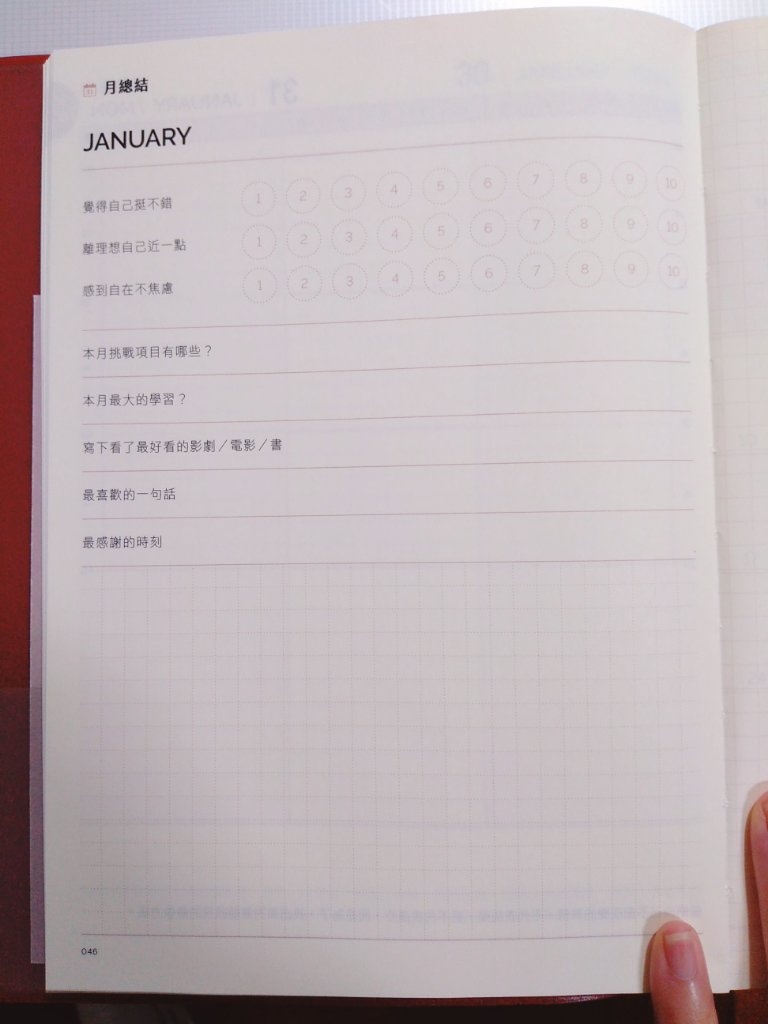 月總結
JANUARY
覺得自己挺不錯 1 2 3 4 5 6 7 8 9 10
離理想自己近一點 1 2 3 4 5 6 7 8 9 10
感到自在不焦慮 1 2 3 4 5 6 7 8 9 10
本月挑戰項目有哪些？
本月最大的學習？
寫下看了最好看的影劇／電影／書
最喜歡的一句話
最感謝的時刻
046